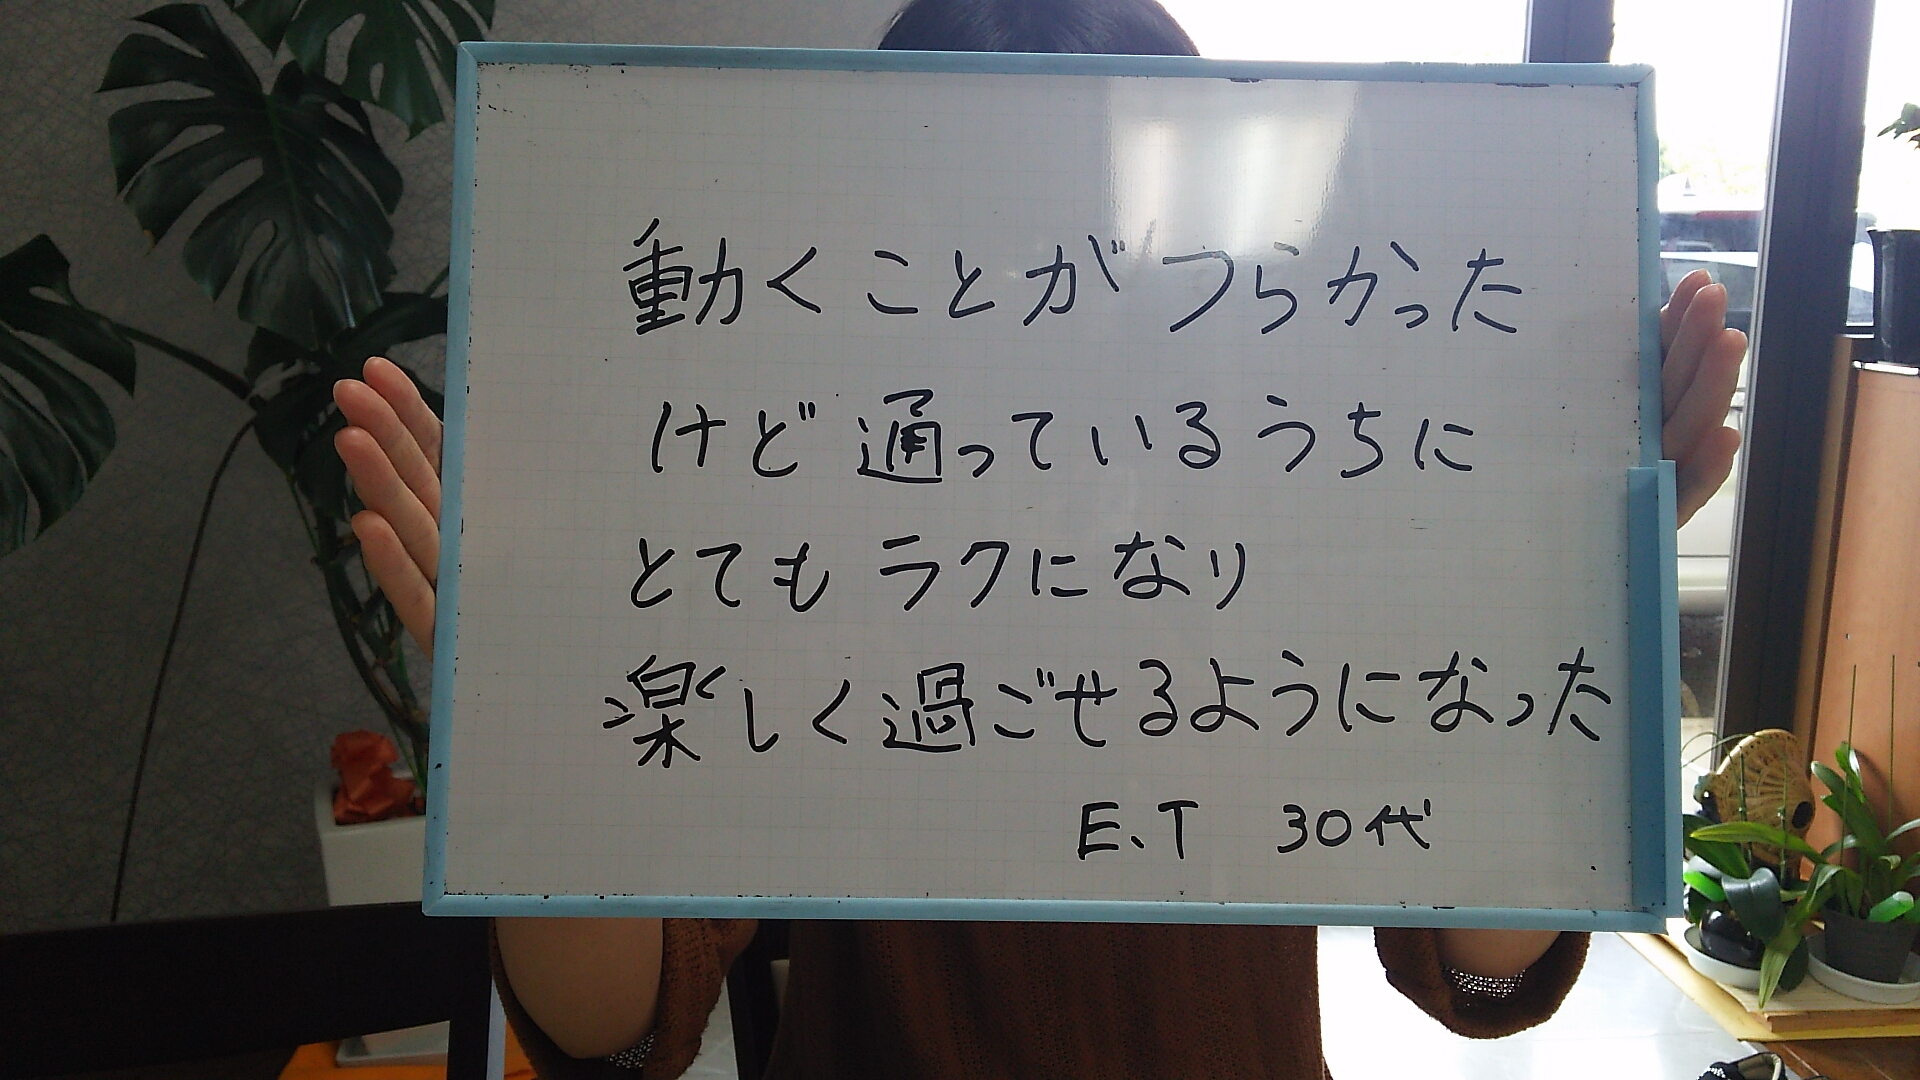 動くことがつらかった
けど通っているうちに
とてもラクになり
楽しく過ごせるようになった
E、T 30代